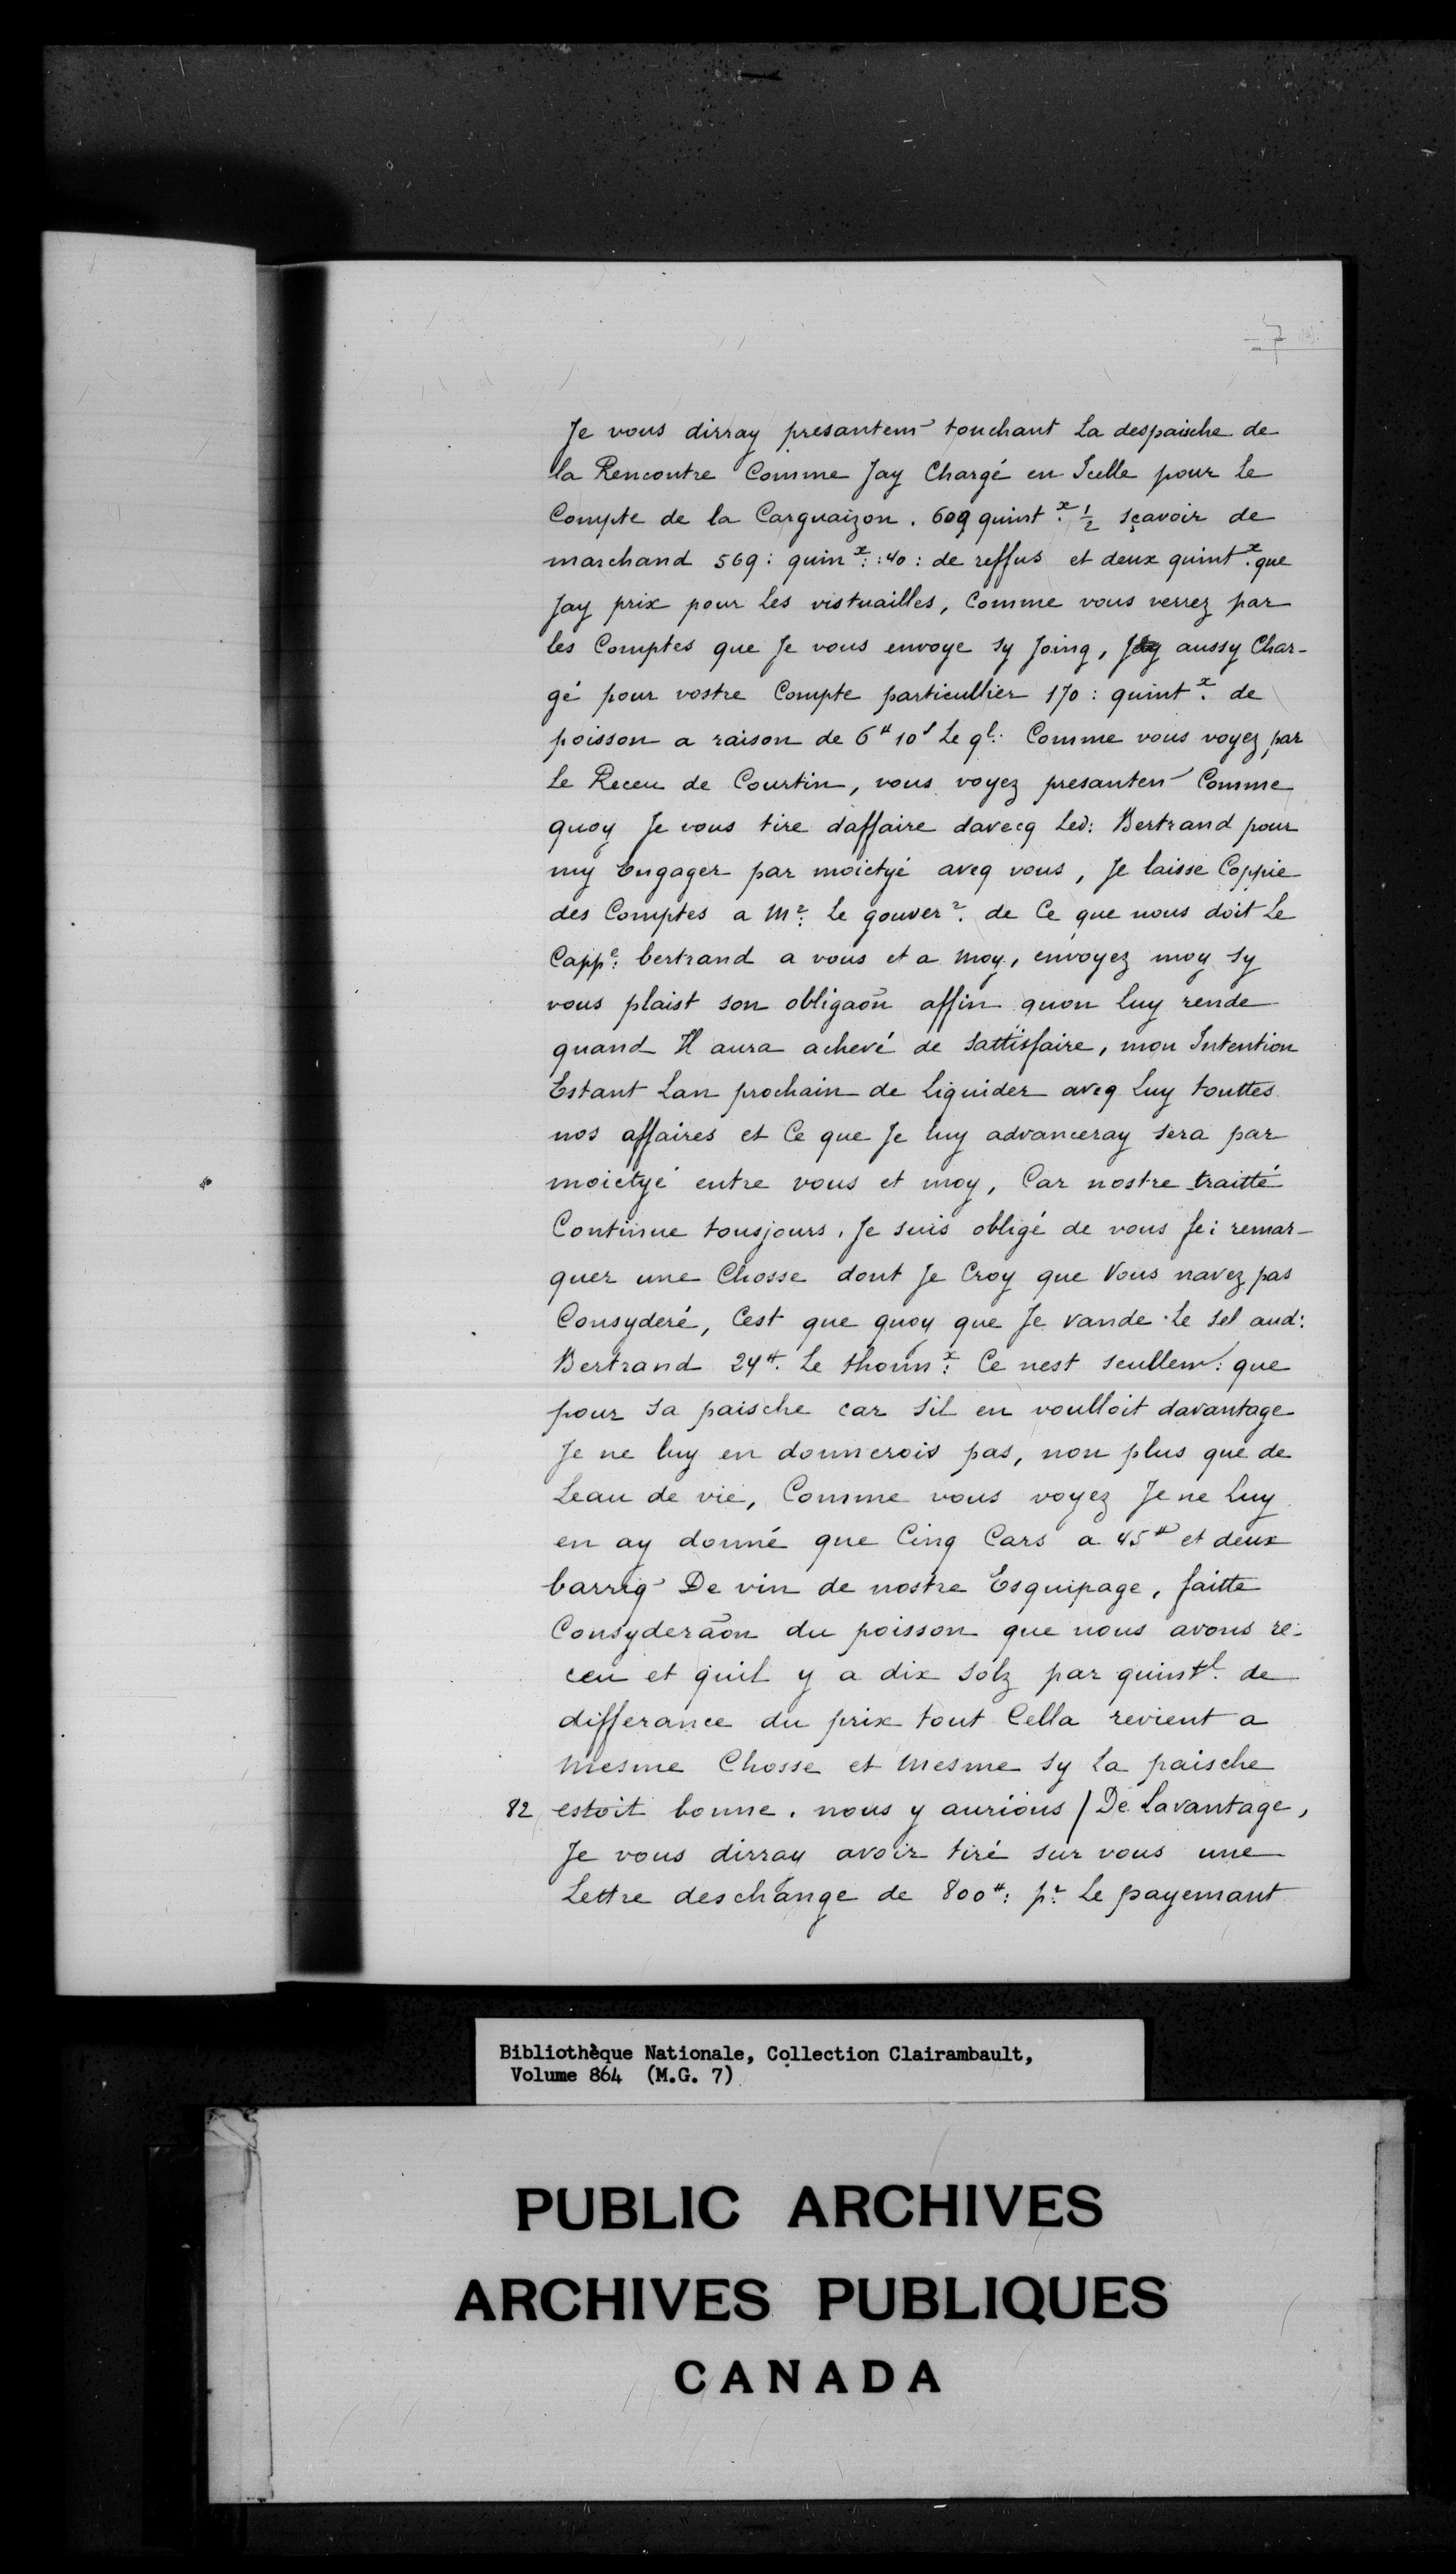 7
Je vous dirray presantem̄ touchant La despaische de
la Rencontre Comme Jay Chargé en Icelle pour Le
Compte de la Carguaizon. 609 quint.ˣ ½ sçavoir de
marchand 569: quin.ˣ: :40: de reffus et deux quint.ˣ que
Jay prix pour Les vistuailles, Comme vous verrez par
les Comptes que Je vous envoye sy Joing, Jay aussy Char-
gé pour vostre Compte particullier 170: quint.ˣ de
poisson a raison de 6ᵗᵗ 10ˢ Le qˡ: Comme vous voyez par
Le Receu de Courtin, vous voyez presantem̄ Comme
quoy Je vous tire daffaire davecq Led: Bertrand pour
my Engager par moictyé aveq vous, Je laisse Coppie
des Comptes a Mʳ: Le gouverʳ. de Ce que nous doit Le
Cappᵉ: bertrand a vous et a Moy, envoyez moy sy
vous plaist son obligaōn affin quon Luy rende
quand Il aura achevé de Sattisfaire, mon Intention
Estant Lan prochain de Liquider aveq Luy touttes
nos affaires et Ce que Je luy advanceray sera par
moictyé entre vous et moy, Car nostre traitté
Continue tousjours. Je suis obligé de vous fe: remar-
quer une Chosse dont Je Croy que Vous navez pas
Consyderé, Cest que quoy que Je Vande Le Sel aud:
Bertrand 24ᵗᵗ. Le thonnˣ: Ce nest seullem̄: que
pour sa paische car Sil en voulloit davantage
Je ne luy en donnerois pas, non plus que de
Leau de vie, Comme vous voyez Je ne Luy
en ay donné que Cinq Cars a 45ᵗᵗ et deux
barriq̄ De vin de nostre Esquipage, faitte
Consyderāon du poisson que nous avons re-
ceu et quil y a dix Solz par quintˡ. de
differance du prix tout Cella revient a
Mesme Chosse et Mesme Sy La paische
82 estoit bonne. nous y aurions / De Lavantage,
Je vous dirray avoir tiré sur vous une
Lettre deschange de 800ᵗᵗ: pʳ. Le payemant
Bibliothèque Nationale, Collection Clairambault,
Volume 864 (M.G. 7)
PUBLIC ARCHIVES
ARCHIVES PUBLIQUES
CANADA